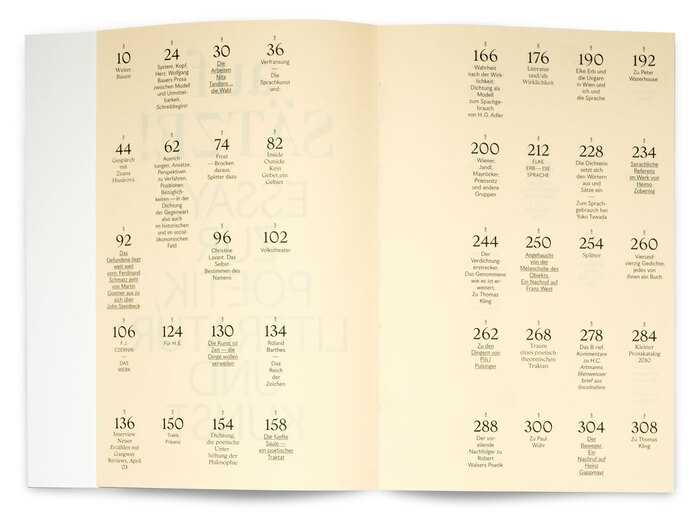 10
Weiner.
Bauen
24
System, Kopf,
Herz. Wolfgang
Bauers Prosa
zwischen Modell
und Unmittel-
barkeit.
Schreibbeginn
30
Die
Arbeiten
Nita
Tandons —
die Wahl
36
Verfransung
—
Die
Sprachkunst
44
Gespräch
mit
Zuzana
Husárová
62
Ausrich-
tungen, Ansätze,
Perspektiven
zu Verfahren,
Positionen,
Bezüglich-
keiten — in der
Dichtung
der Gegenwart
also auch
im historischen
und im sozial-
ökonomischen
Feld
74
Frost
— Brocken
daraus.
Splitter dazu
82
Inside
Outside.
Kein
Gebet, ein
Gebiet
92
Das
Gefundene liegt
weit weit
vorn. Ferdinand
Schmatz geht
von Martin
Gostner aus zu
sich über
John Steinbeck
96
Christine
Lavant. Das
Selbst-
Bestimmen des
Namens
102
Volkstheater
106
F. J.
CZERNIN
—
DAS
WERK
124
Für H.E.
130
Die Kunst ist
Zeit — die
Dinge wollen
verweilen
134
Roland
Barthes
—
Das
Reich
der
Zeichen
136
Interview
Neues
Erzählen mit
Gangway
Reviews, April
03
150
Trakls
Präsenz
154
Dichtung,
die poetische
Unter-
höhlung der
Philosophie
158
Die fünfte
Säule —
ein poetischer
Traktat
166
Wahrheit
nach der Wirk-
lichkeit:
Dichtung als
Modell
zum Spachge-
brauch
von H. G. Adler
176
Literatur
und/als
Wirklichkeit
190
Elke Erb und
die Ungarn
in Wien und
ich und
die Sprache
192
Zu Peter
Waterhouse
200
Wiener,
Jandl,
Mayröcker,
Priessnitz
und andere
Gruppen
212
ELKE
ERB — DIE
SPRACHE
228
Die Dichterin
setzt sich
den Wörtern
aus und
Sätze ein
—
Zum Sprach-
gebrauch bei
Yoko Tawada
234
Sprachliche
Referenz
im Werk von
Heimo
Zobernig
244
Der
Verdichtung-
erstrecker.
Das Genommene
wie es ist er-
weitert.
Zu Thomas
Kling
250
Angehaucht
von der
Melancholie des
Objekts.
Ein Nachruf auf
Franz West
254
Splitter
260
Vierund-
vierzig Gedichte,
jedes von
ihnen ein Buch
262
Zu den
Dingern von
Pils /
Pulsinger
268
Traum
eines poetisch-
theoretischen
Traktats
278
Das B rief.
Kommentare
zu H.C.
Artmanns
lilienweisser
brief aus
lincolnshire
284
Kleiner
Prosakatalog
2010
288
Der vor-
eilende
Nachfolger zu
Robert
Walsers Poetik
300
Zu Paul
Wühr
304
Der
Beweger.
Ein
Nachruf auf
Heinz
Gappmayr
308
Zu Thomas
Kling